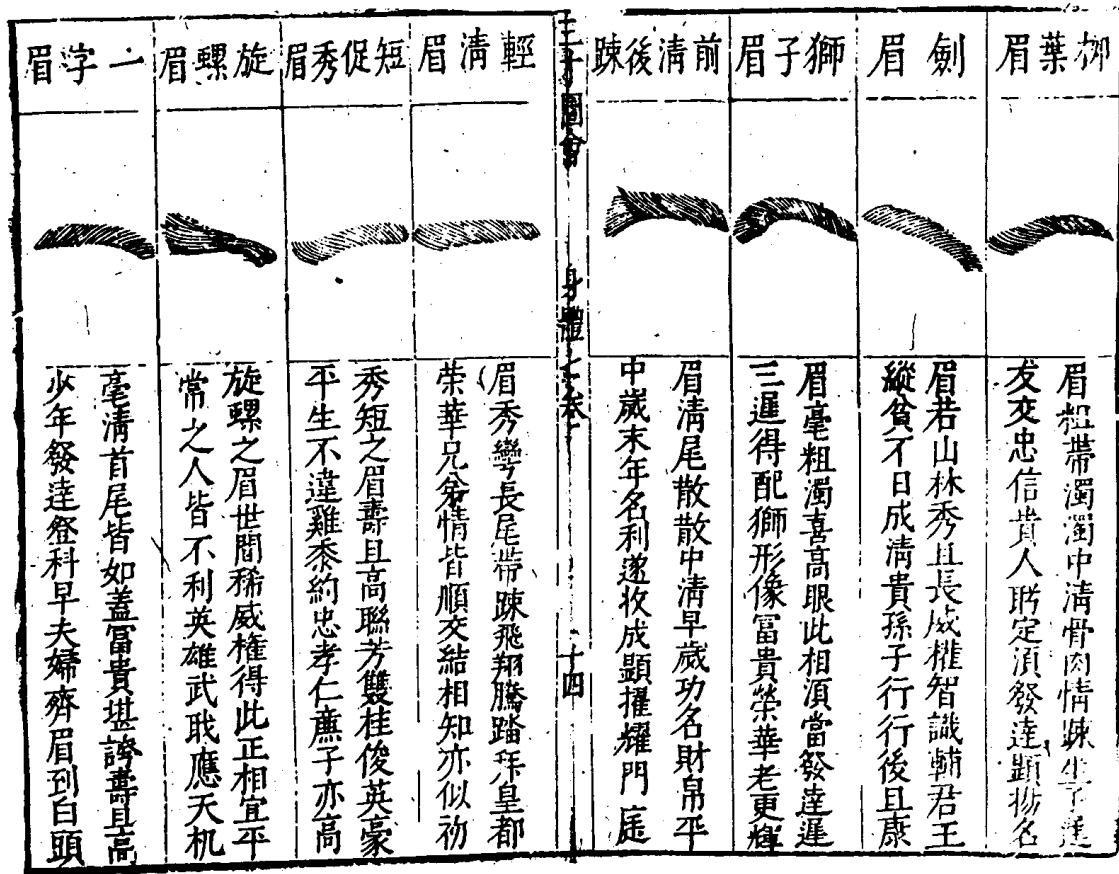 栁葉眉
眉粗帶濁濁中清骨肉情踈生子遲
友交忠信貴人盻定湏發達顯揚名
劍眉
眉若山林秀且長威權智識輔君王
縱貧不日成清貴孫子行行後且康
獅子眉
眉毫粗濁喜高眼此相湏當發達遲
三遲得配獅形像富貴榮華老更輝
前清後踈
眉清尾散散中清早歲功名財帛平
中歲末年名利遂收成顯擢耀門庭
三才圖會
身體
卷
十四
輕清眉
眉秀彎長尾帶踈飛翔騰踏拜皇都
榮華兄弟情皆順交結相知亦似初
短促秀眉
秀短之眉壽且高聯芳雙桂俊英豪
平生不違雞黍約忠孝仁廉子亦高
旋螺眉
旋螺之眉世間稀威權得此正相宜平
常之人皆不利英雄武職應天机
一字眉
毫清首尾皆如蓋富貴堪誇壽且高
少年發達登科早夫婦齊眉到白頭